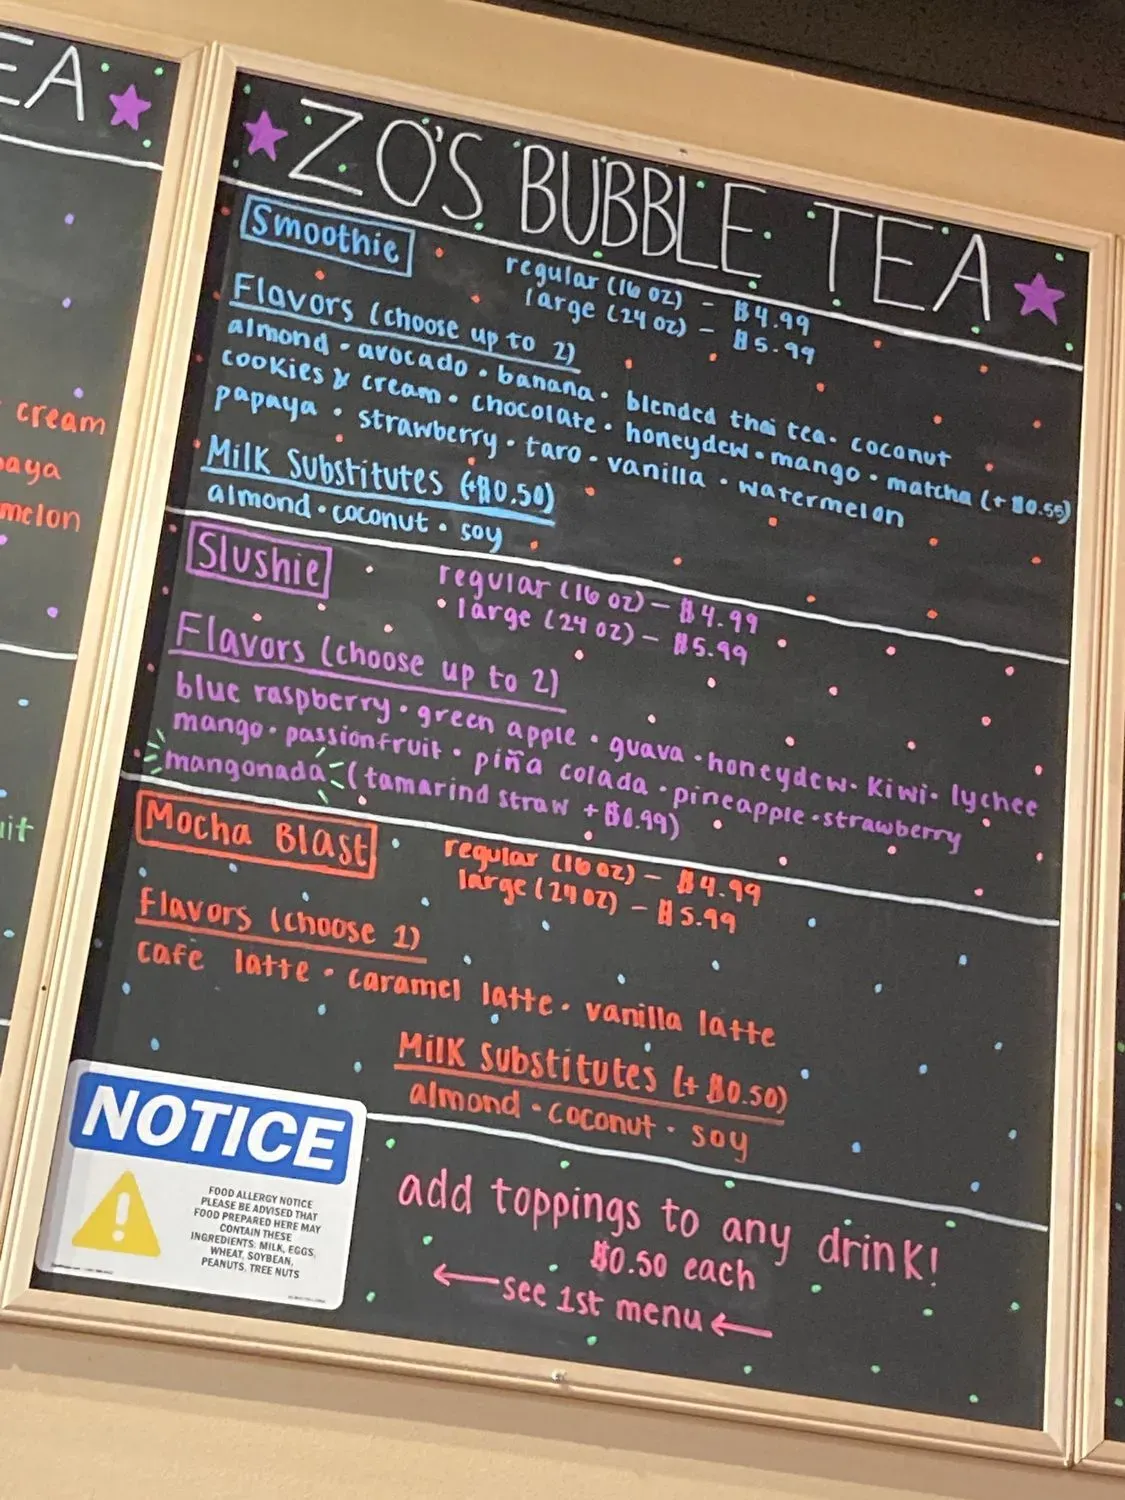 EA
cream
paya
melon
uit
ZO'S BUBBLE TEA
Smoothie
regular (16 oz) - $4.99
large (24 oz) - $5.99
Flavors (choose up to 2)
almond • avocado • banana • blended thai tea • coconut
cookies & cream • chocolate • honeydew • mango • matcha (+ $0.55)
papaya • strawberry • taro • vanilla • watermelon
Milk Substitutes (+$0.50)
almond • coconut • soy
Slushie
regular (16 oz) - $4.99
large (24 oz) - $5.99
Flavors (choose up to 2)
blue raspberry • green apple • guava • honeydew • kiwi • lychee
mango • passionfruit • piña colada • pineapple • strawberry
mangonada (tamarind straw + $0.99)
Mocha Blast
regular (16 oz) - $4.99
large (24 oz) - $5.99
Flavors (choose 1)
cafe latte • caramel latte • vanilla latte
Milk Substitutes (+ $0.50)
almond • coconut • soy
add toppings to any drink!
$0.50 each
←see 1st menu←
NOTICE
FOOD ALLERGY NOTICE
PLEASE BE ADVISED THAT
FOOD PREPARED HERE MAY
CONTAIN THESE
INGREDIENTS: MILK, EGGS,
WHEAT, SOYBEAN,
PEANUTS, TREE NUTS